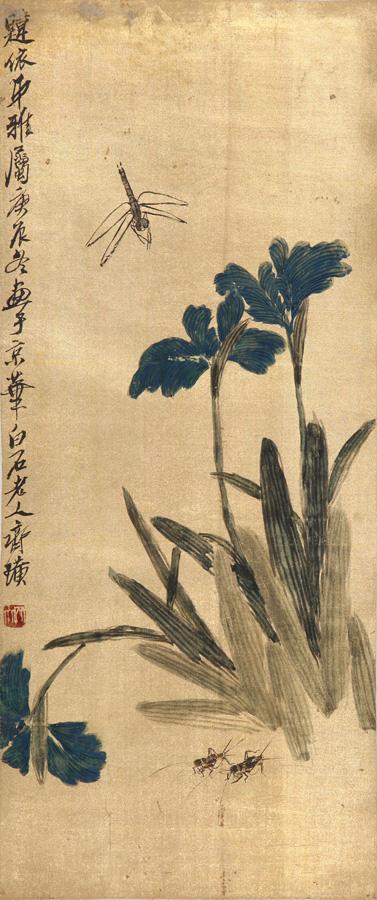 依耶雅屬庚辰冬畫于京華白石老人齊璜